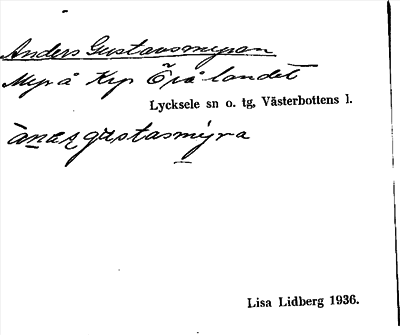 Anders Gustavsmyran
Myr å Krp Örålandet
Lycksele sn o. tg, Västerbottens l.
ànaʂ gɐstasmy̆ra
Lisa Lidberg 1936.